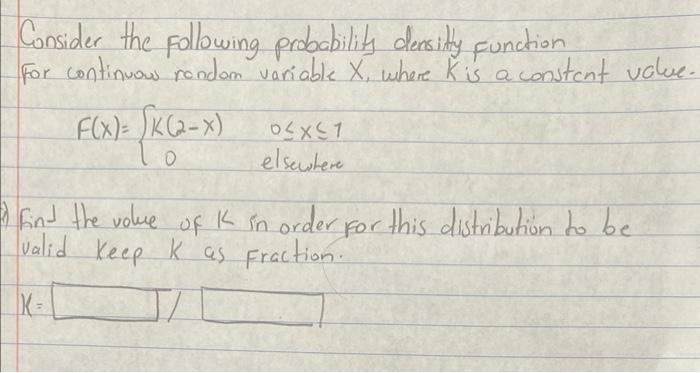 Consider the following probability density function
For continuous random variable X, where K is a constant value.
F(x)= { K(2-x) 0≤x≤1
0 elsewhere
Find the value of K in order for this distribution to be
valid Keep K as Fraction.
K= /